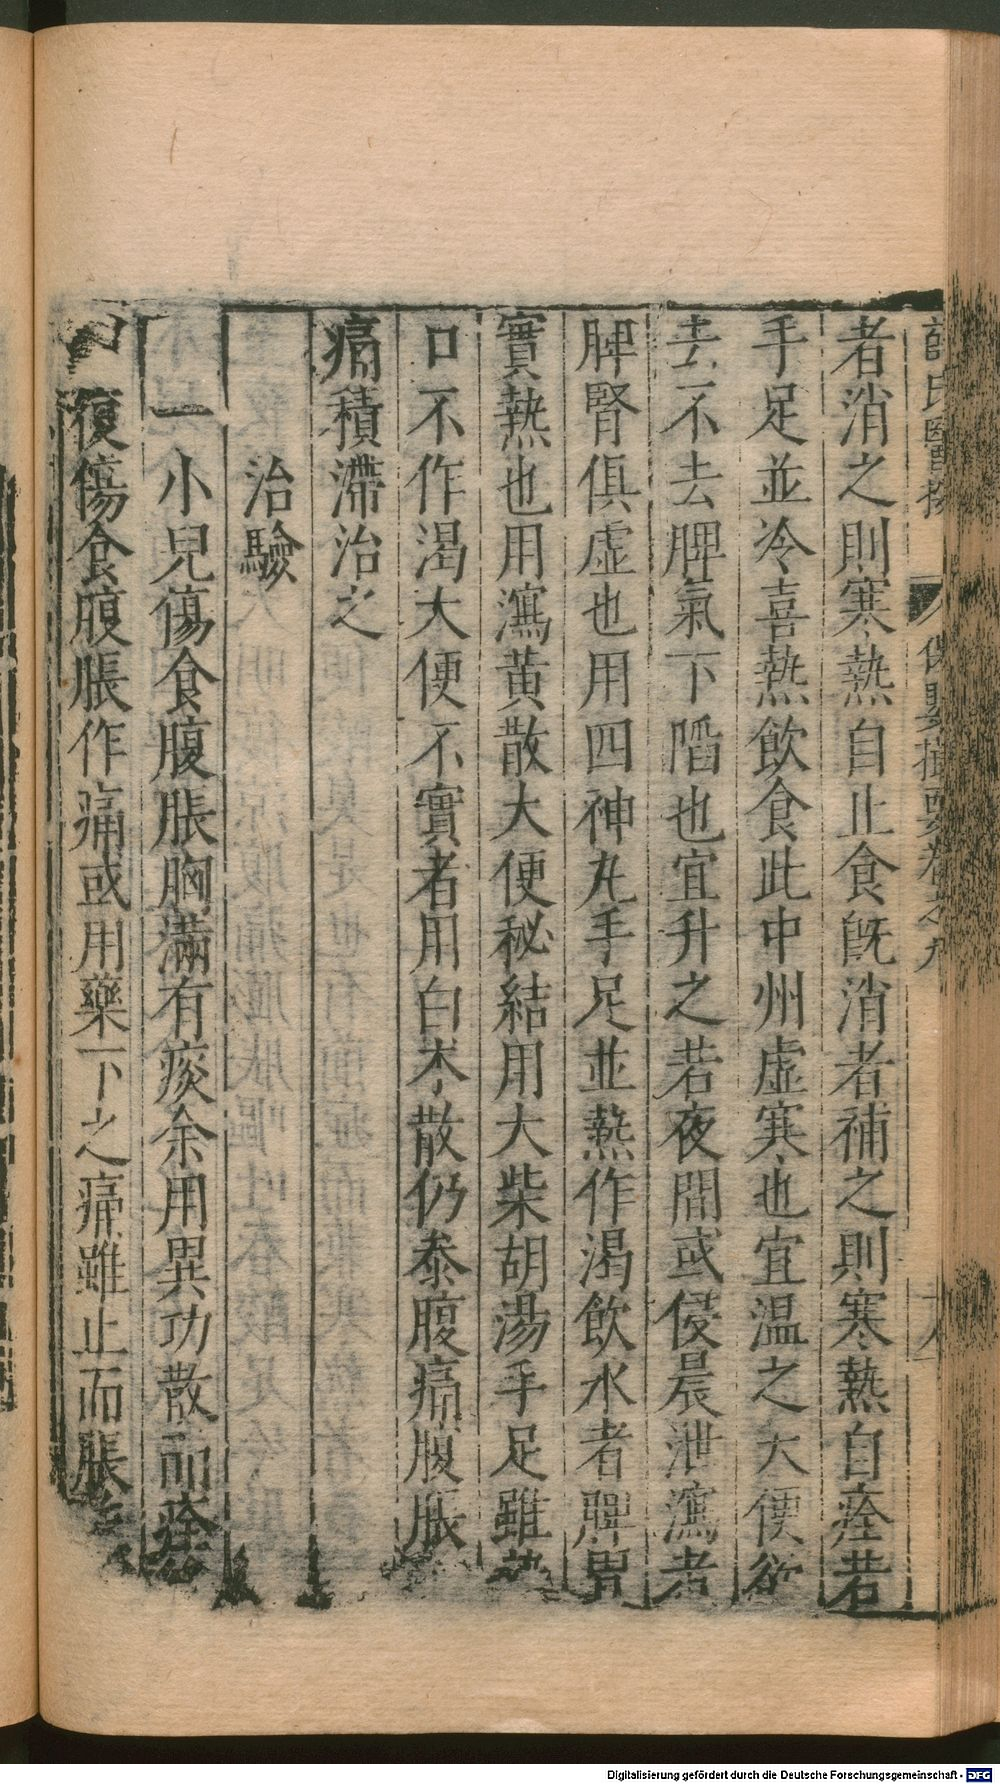 薛氏醫按 保嬰撮要卷之九 十八
者消之則寒熱自止食旣消者補之則寒熱自痊若
手足並冷喜熱飲食此中州虛寒也宜温之大便欲
去不去脾氣下䧟也宜升之若夜間或侵晨泄瀉者
脾腎俱虛也用四神丸手足並熱作渴飲水者脾胃
實熱也用瀉黃散大便秘結用大柴胡湯手足雖熱
口不作渴大便不實者用白朮散仍參腹痛腹脹
痛積滯治之
治驗
一小兒傷食腹脹胸滿有痰余用異功散而痊
復傷食腹脹作痛或用藥下之痛雖止而脹
Digitalisierung gefördert durch die Deutsche Forschungsgemeinschaft - DFG